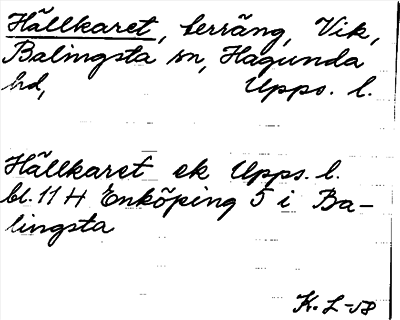 Hällkaret, terräng, Vik,
Balingsta sn, Hagunda
hd, Upps. l.
Hällkaret ek Upps. l.
bl. 11 H Enköping 5 i Ba-
lingsta
K. L-58